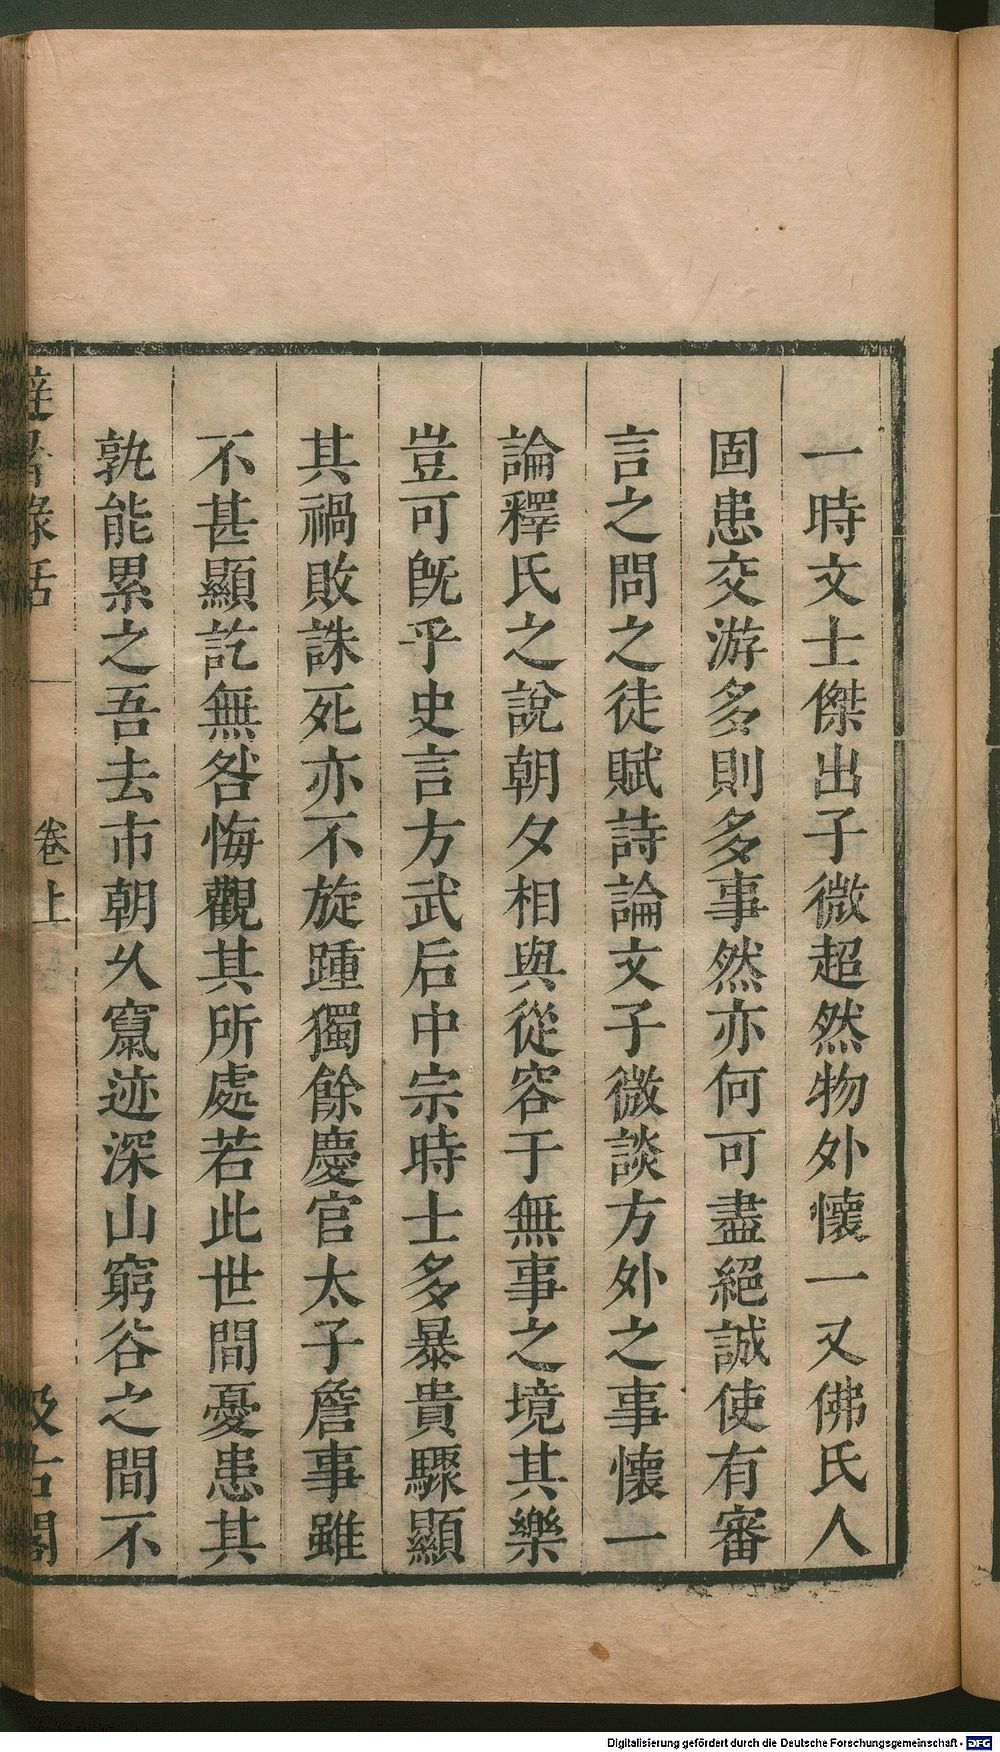 一時文士傑出子微超然物外懷一又佛氏人
固患交游多則多事然亦何可盡絕誠使有審
言之問之徒賦詩論文子微談方外之事懷一
論釋氏之說朝夕相與從容于無事之境其樂
豈可旣乎史言方武后中宗時士多暴貴驟顯
其禍敗誅死亦不旋踵獨餘慶官太子詹事雖
不甚顯訖無咎悔觀其所處若此世間憂患其
孰能累之吾去市朝久竄迹深山窮谷之間不
避暑錄話
卷上
汲古閣
Digitalisierung gefördert durch die Deutsche Forschungsgemeinschaft - DFG